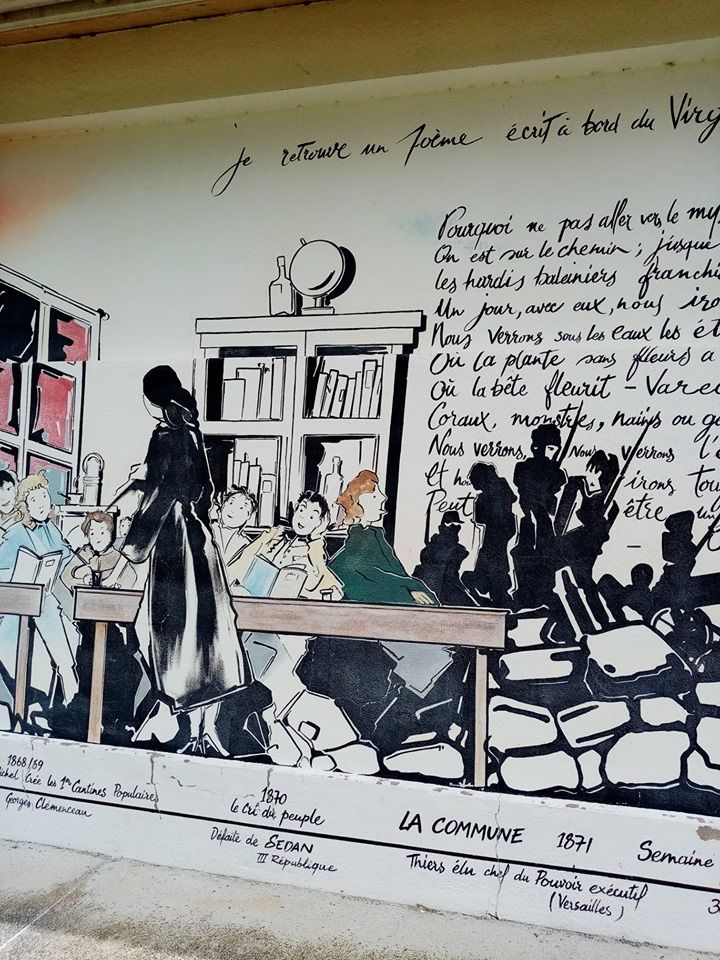 Je retrouve un Poème écrit à bord du Virg
Pourquoi ne pas aller vers le mys
On est sur le chemin ; jusque
les hardis baleiniers franchi
Un jour, avec eux, nous iro
Nous verrons sous les eaux les ét
Où la plante sans fleurs a
Où la bête fleurit - Varec
Coraux, monstres, nains ou g
Nous verrons, Nous verrons l'é
Et irons tou
Peut être un
1868/69
ichel Crée les 1res Cantines Populaires
Georges Clémenceau
1870
le Cri du peuple
Défaite de SEDAN
III République
LA COMMUNE 1871 Semaine
Thiers élu chef du Pouvoir exécutif
(Versailles)
3